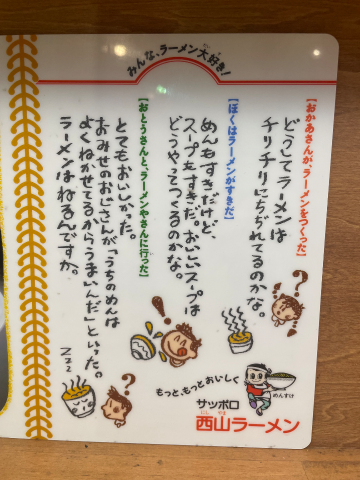 みんな、ラーメン大好き！
【おかあさんが、ラーメンをつくった】
どうしてラーメンは
チリチリにちぢれてるのかな。
【ぼくはラーメンがすきだ】
めんもすきだけど、
スープもすきだ。おいしいスープは
どうやってつくるのかな。
【おとうさんと、ラーメンやさんに行った】
とてもおいしかった。
おみせのおじさんが「うちのめんは
よくねかせてるからうまいんだ」といった。
ラーメンはねるんですか。
?
!
Zzz
?
もっと、もっとおいしく
めんすけ
サッポロ
西山ラーメン
にしやま